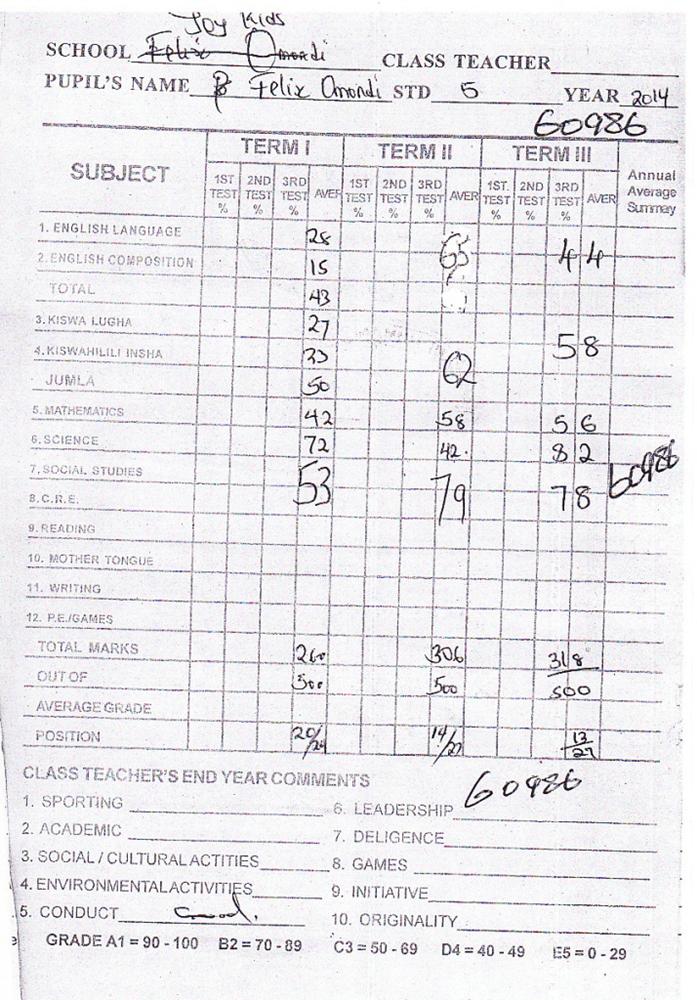 Joy Kids
SCHOOL Felix Omondi CLASS TEACHER
PUPIL'S NAME Felix Omondi STD 5 YEAR 2014
60986
SUBJECT TERM I TERM II TERM III Annual Average Summary
1ST TEST % 2ND TEST % 3RD TEST % AVER 1ST TEST % 2ND TEST % 3RD TEST % AVER 1ST. TEST % 2ND TEST % 3RD TEST % AVER
1. ENGLISH LANGUAGE 28
2. ENGLISH COMPOSITION 15 65 44
TOTAL 43
3. KISWA LUGHA 27
4. KISWAHILILI INSHA 33 58
JUMLA 50 62
5. MATHEMATICS 42 58 56
6. SCIENCE 72 42. 82
7. SOCIAL STUDIES 53 79 78 60986
8. C.R.E.
9. READING
10. MOTHER TONGUE
11. WRITING
12. P.E./GAMES
TOTAL MARKS 260 306 318
OUT OF 500 500 500
AVERAGE GRADE
POSITION 20/24 14/27 13/27
CLASS TEACHER'S END YEAR COMMENTS 60986
1. SPORTING 6. LEADERSHIP
2. ACADEMIC 7. DELIGENCE
3. SOCIAL / CULTURAL ACTITIES 8. GAMES
4. ENVIRONMENTAL ACTIVITIES 9. INITIATIVE
5. CONDUCT Good. 10. ORIGINALITY
GRADE A1 = 90 - 100 B2 = 70 - 89 C3 = 50 - 69 D4 = 40 - 49 E5 = 0 - 29